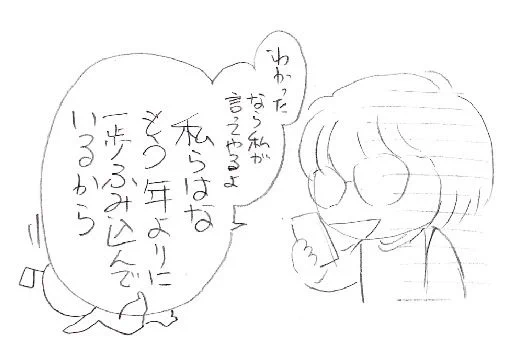 わかった
なら私が
言ってやるよ
私らはな
もう年よりに
一歩ふみ込んで
いるから